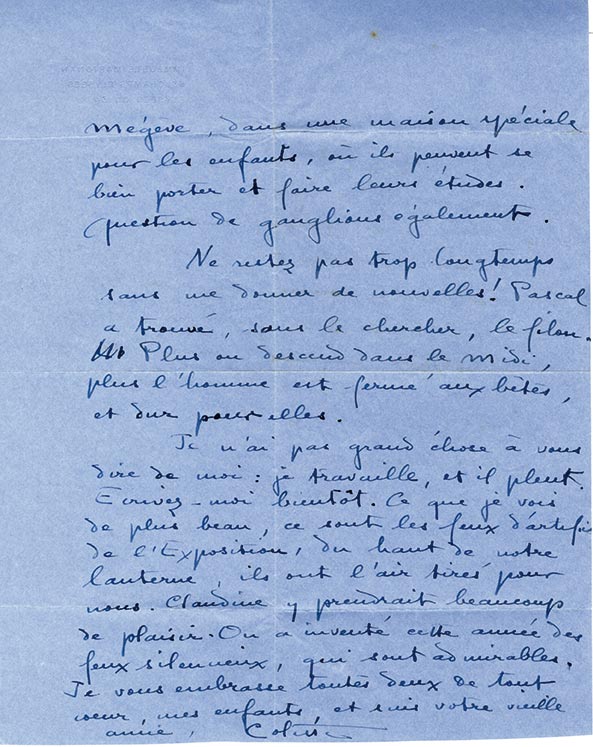 Mégève, dans une maison spéciale
pour les enfants, où ils peuvent se
bien porter et faire leurs études.
Question de ganglions également.
Ne restez pas trop longtemps
sans me donner de nouvelles! Pascal
a trouvé, sans le chercher, le filon.
Plus on descend dans le midi,
plus l'homme est fermé aux bêtes,
et dur pour elles.
Je n'ai pas grand chose à vous
dire de moi : je travaille, et il pleut.
Ecrivez-moi bientôt. Ce que je vois
de plus beau, ce sont les feux d'artifi
de l'Exposition, du haut de notre
lanterne, ils ont l'air tirés pour
nous. Claudine y prendrait beaucoup
de plaisir. On a inventé cette année des
feux silencieux, qui sont admirables.
Je vous embrasse toutes deux de tout
cœur, mes enfants, et suis votre vieille
amie, Colette